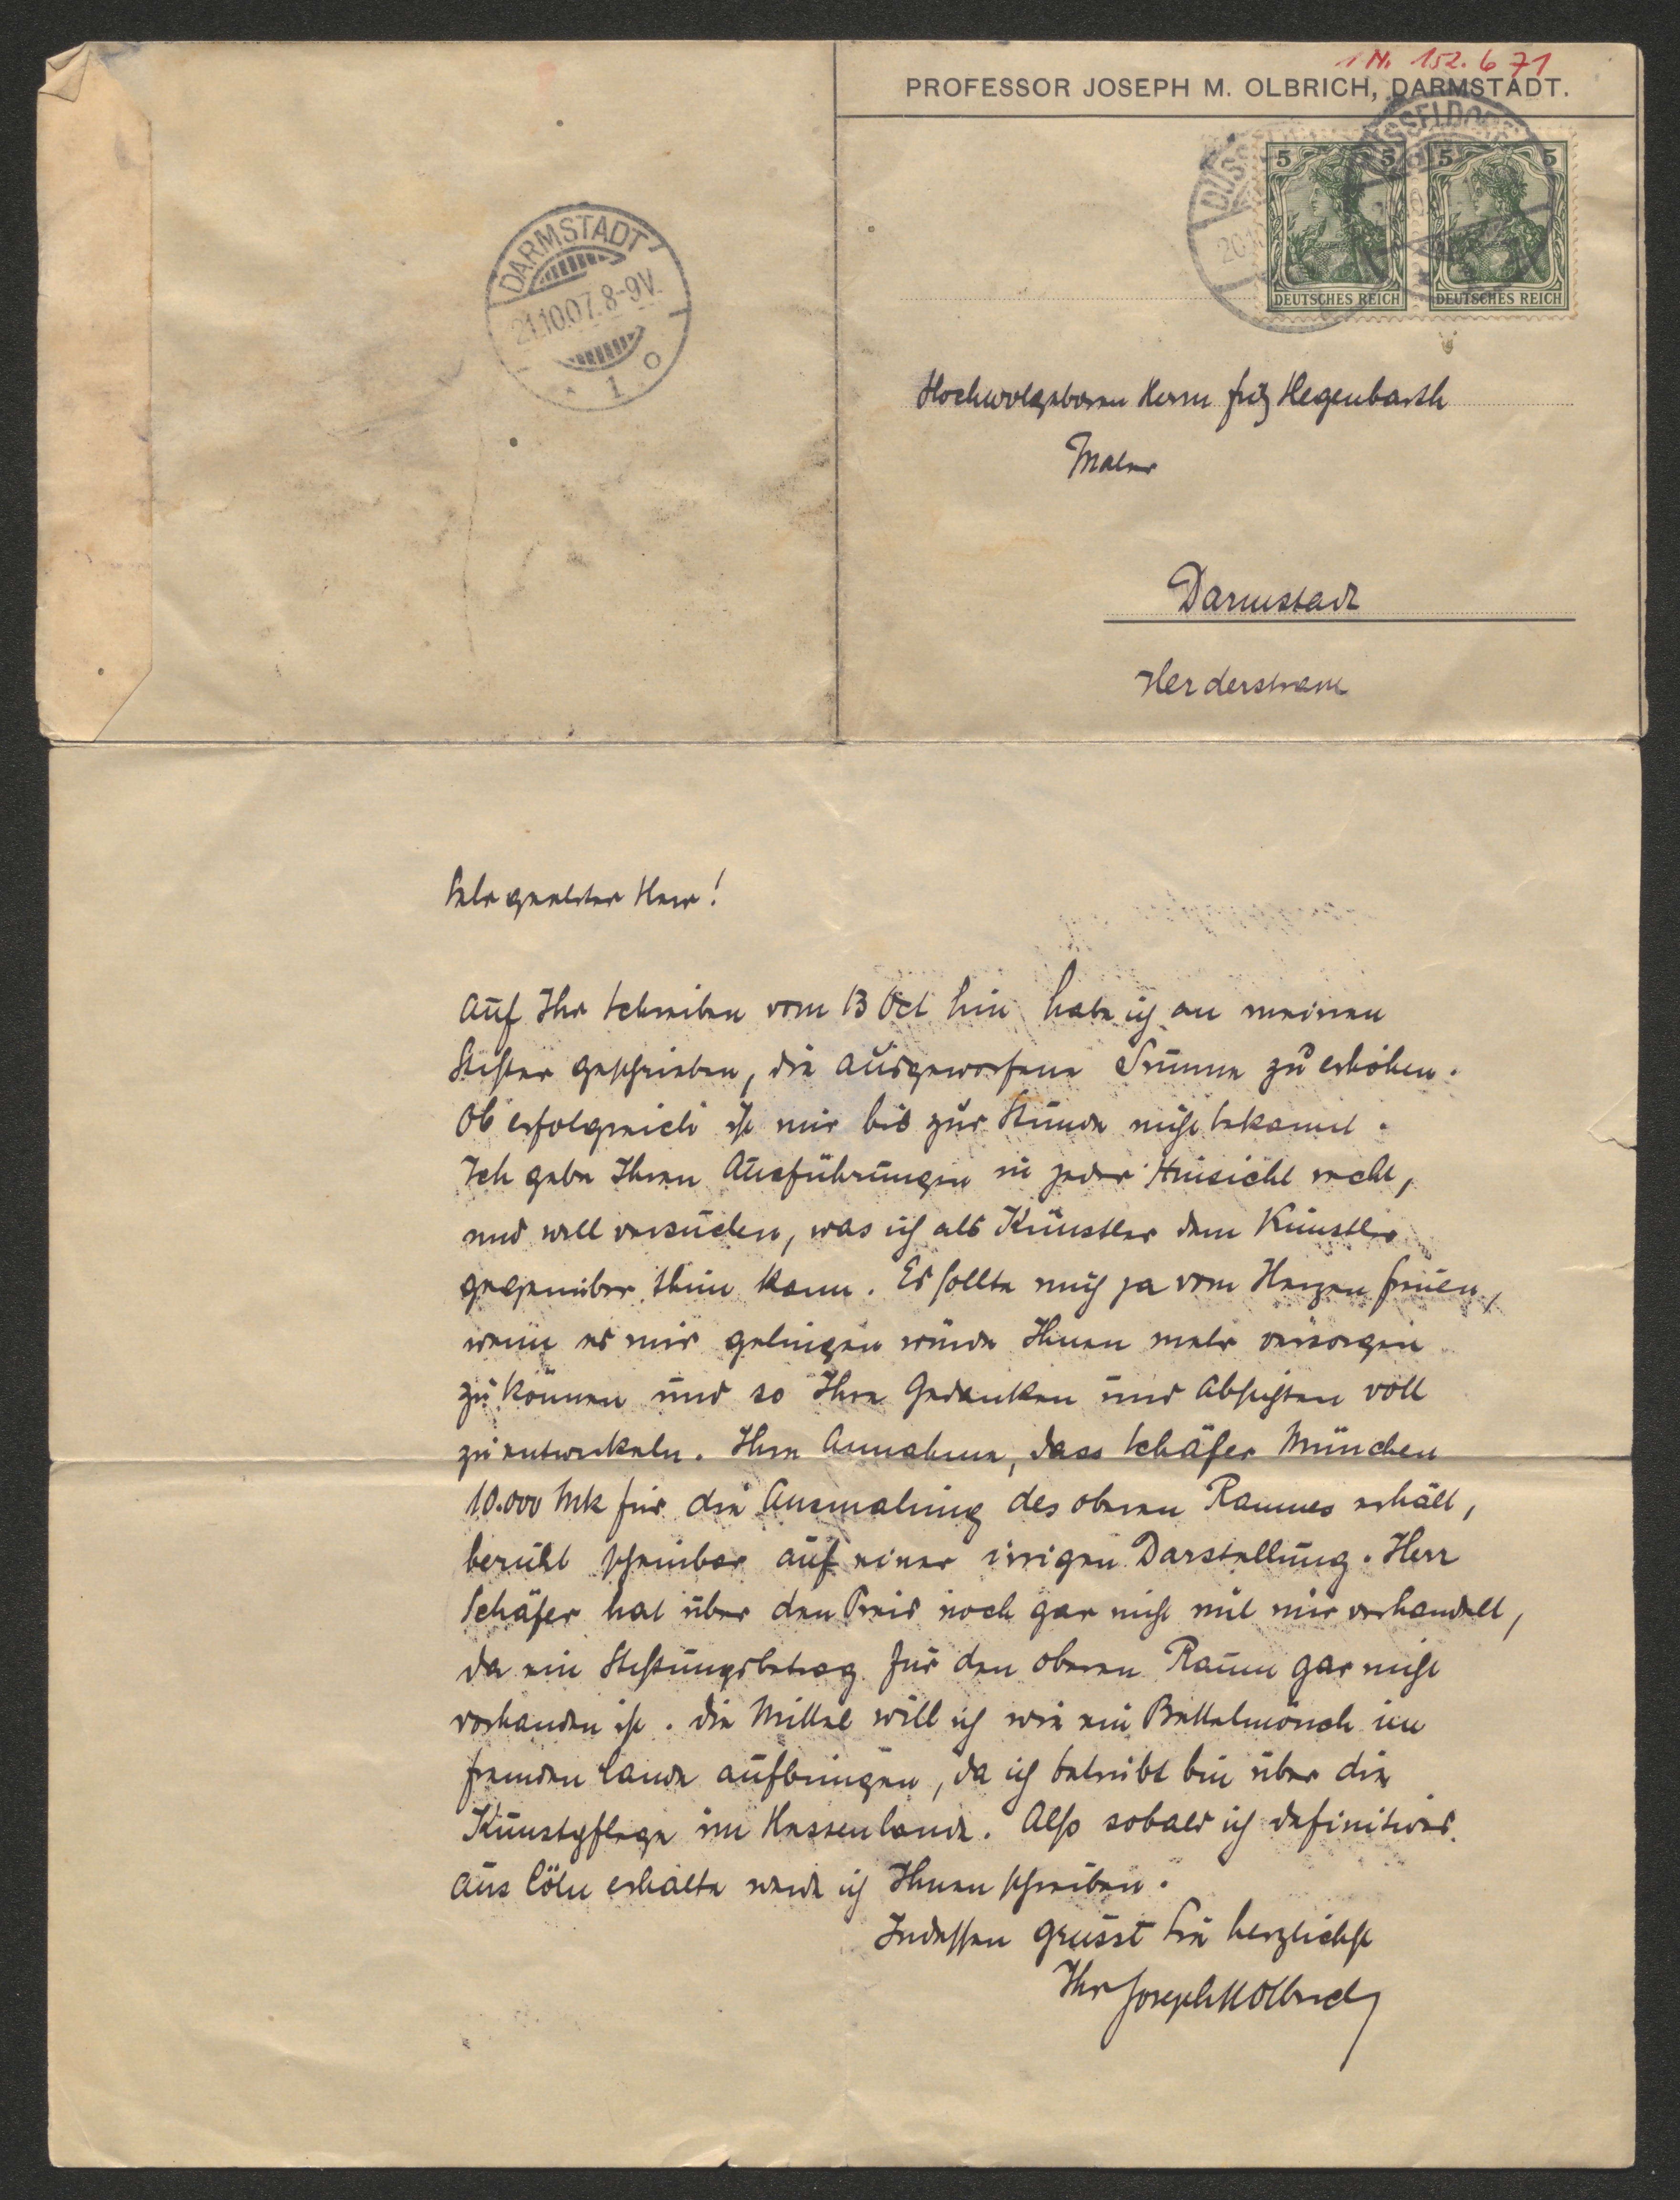 I N. 152.671
PROFESSOR JOSEPH M. OLBRICH, DARMSTADT.
DÜSSELDORF
5 5 5 5
DEUTSCHES REICH DEUTSCHES REICH
DARMSTADT
21.10.07. 8-9V.
* 1 o
Hochwolgeboren Herrn Fritz Hegenbarth
Maler
Darmstadt
Herderstrasse
Sehr geehrter Herr!
Auf Ihr Schreiben vom 13 Oct hin habe ich an meinen
Stifter geschrieben, die ausgeworfene Summe zu erhöhen.
Ob erfolgreich ist mir bis zur Stunde nicht bekannt.
Ich gebe Ihren Ausführungen in jeder Hinsicht recht,
und will versuchen, was ich als Künstler dem Künstler
gegenüber thun kann. Es sollte mich ja vom Herzen freuen,
wenn es mir gelingen würde Ihnen mehr versorgen
zu können und so Ihre Gedanken und Absichten voll
zu entwickeln. Ihre Annahme, dass Schäfer München
10.000 Mk für die Ausmalung des oberen Raumes erhält,
beruht scheinbar auf einer irrigen Darstellung. Herr
Schäfer hat über den Preis noch gar nicht mit mir verhandelt,
da ein Stiftungsbetrag für den oberen Raum gar nicht
vorhanden ist. Die Mittel will ich wie ein Bettelmönch im
fremden Lande aufbringen, da ich betrübt bin über die
Kunstpflege im Hessenlande. Also sobald ich definitives
aus Cöln erhalte werde ich Ihnen schreiben.
Indessen grüsst Sie herzlichst
Ihr Joseph M Olbrich